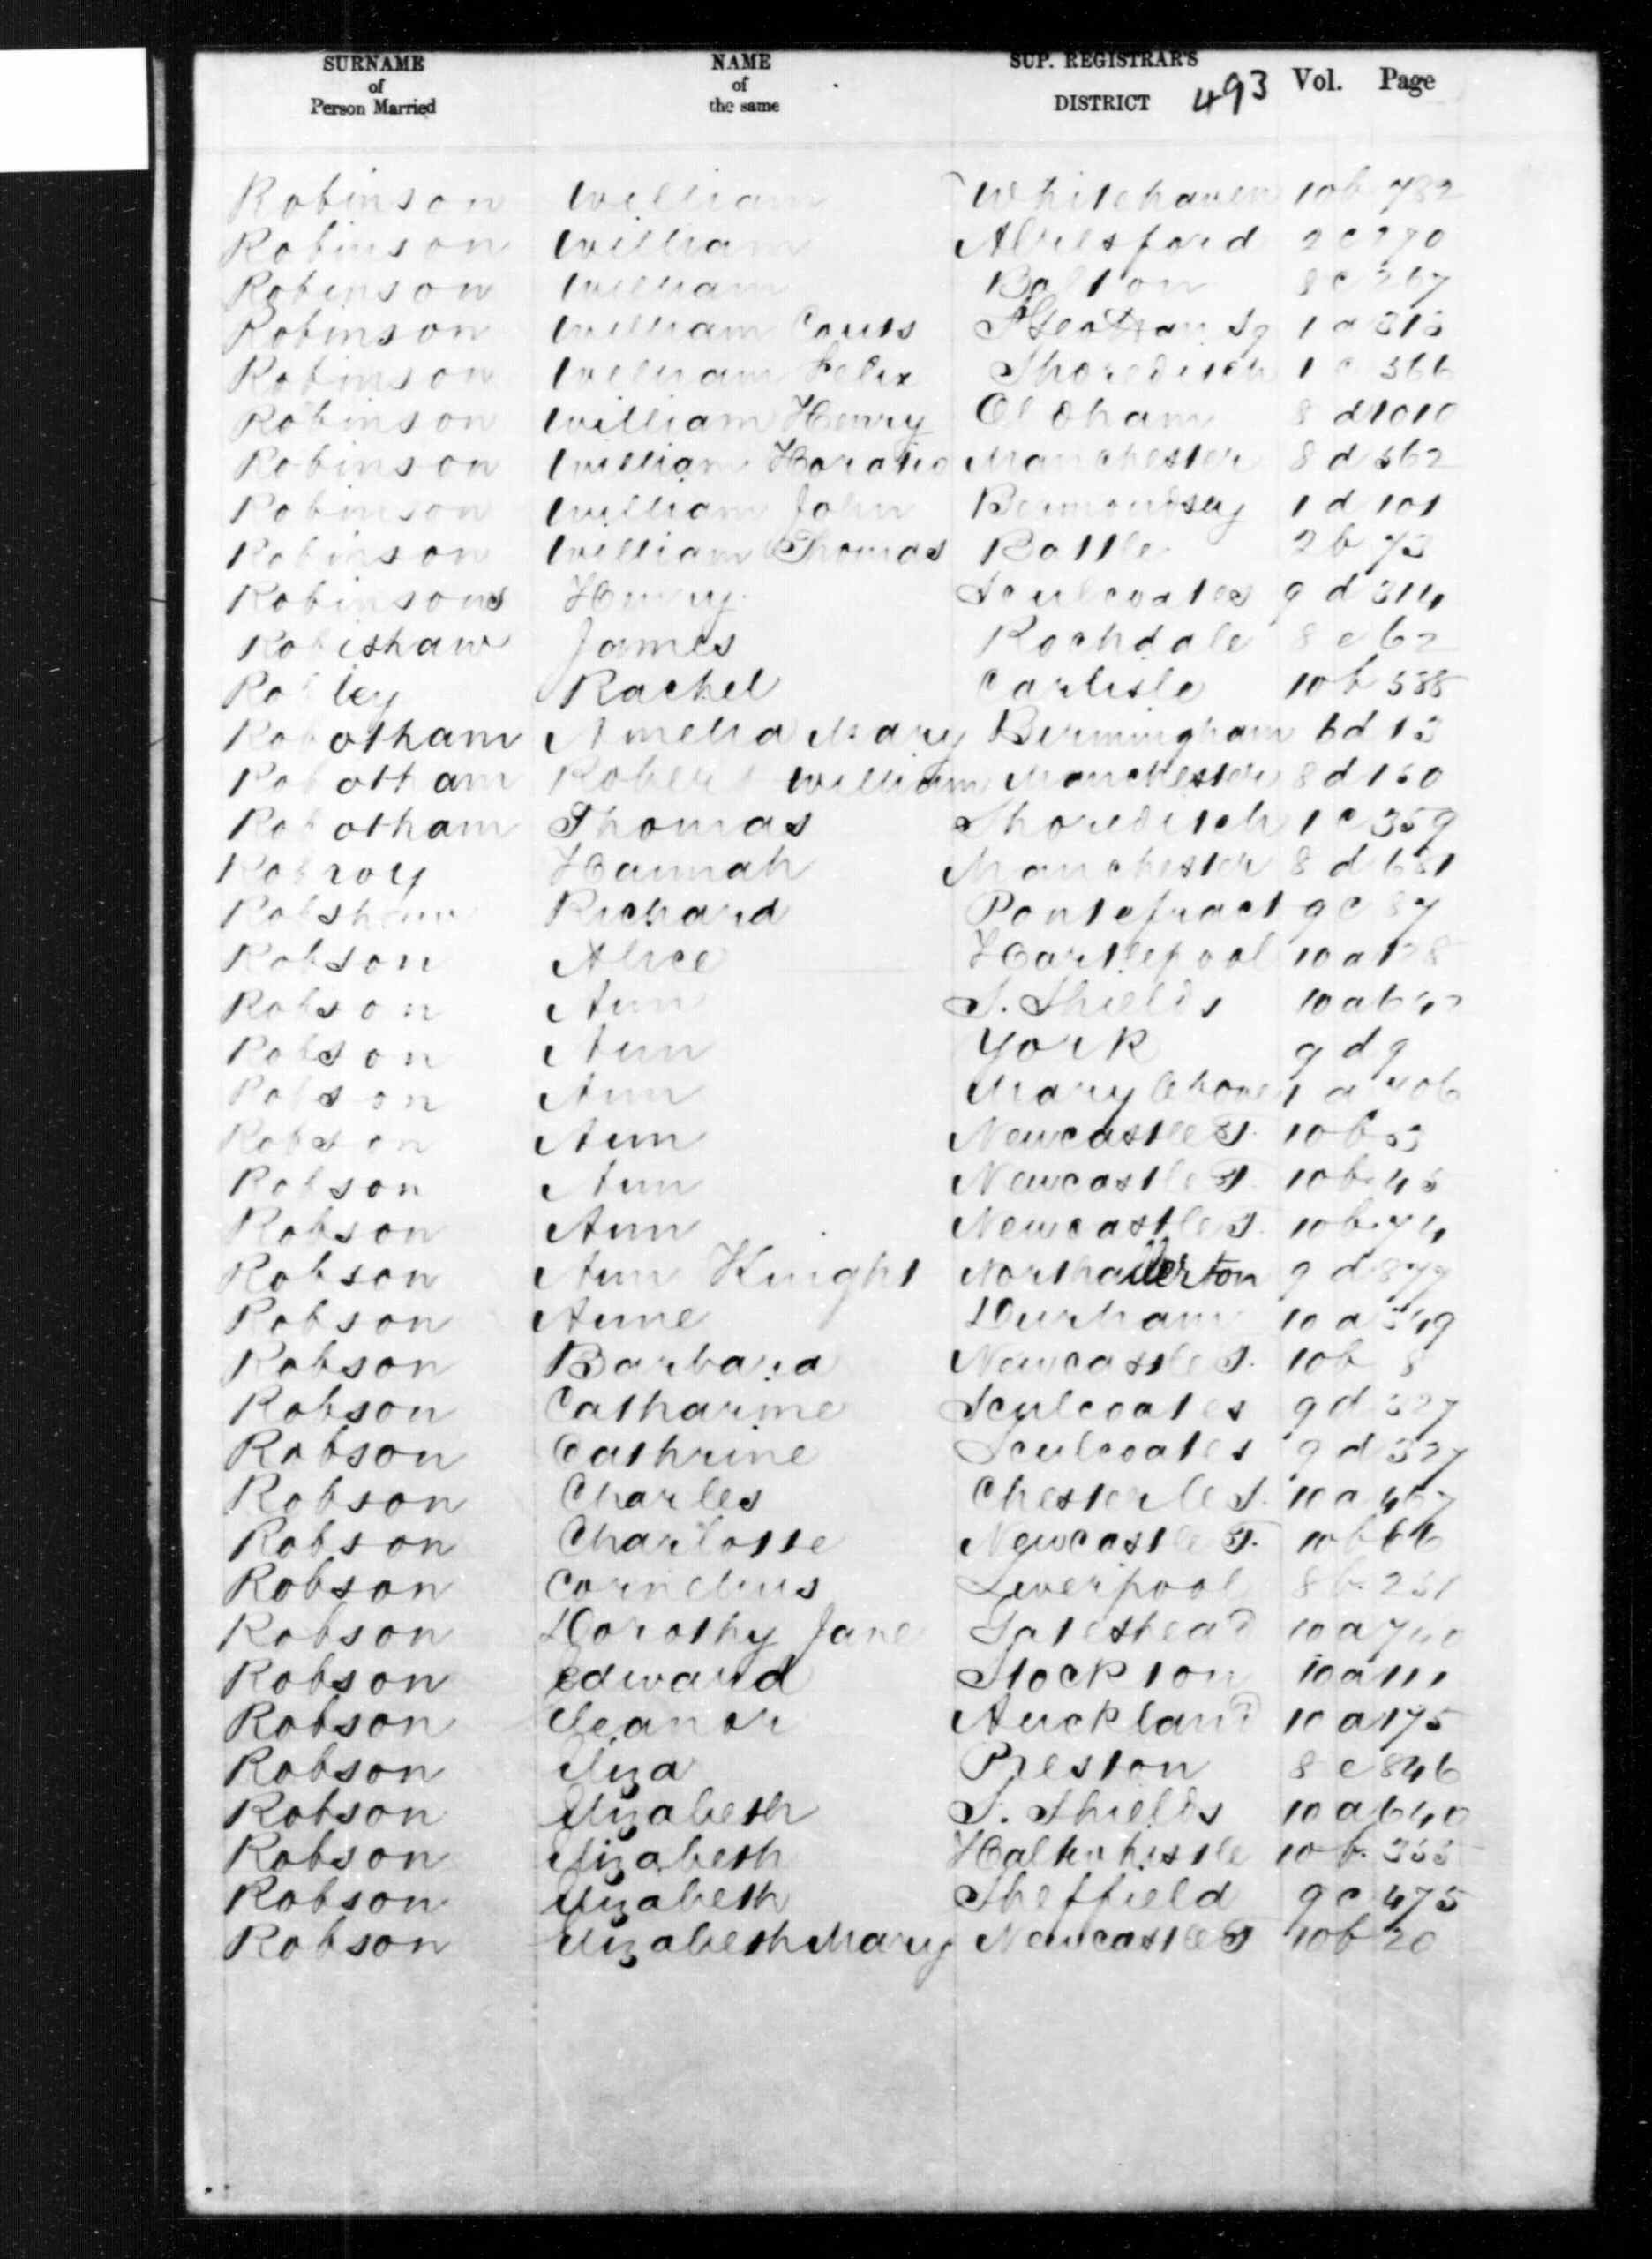 SURNAME of Person Married NAME of the same SUP. REGISTRAR'S DISTRICT 493 Vol. Page
Robinson William Whitehaven 10b 782
Robinson William Alresford 2c 270
Robinson William Bolton 8c 267
Robinson William Couts St Geo Han Sq 1a
Robinson William Felix Shoreditch 1c 366
Robinson William Henry Oldham 8d 1010
Robinson William Horatio Manchester 8d
Robinson William John Bermondsey 1d 101
Robinson William Thomas Battle 2b 73
Robinsons Henry Sculcoates 9d 314
Robishaw James Rochdale 8e 62
Robley Rachel Carlisle 10b
Robotham Amelia Mary Birmingham 6d 13
Robotham Robert William Manchester 8d
Robotham Thomas Shoreditch 1c 359
Robroy Hannah Manchester 8d 681
Robshaw Richard Pontefract 9c 87
Robson Alice Hartlepool 10a 128
Robson Ann S. Shields 10a
Robson Ann York 9d 9
Robson Ann Marylebone 1a
Robson Ann Newcastle T. 10b
Robson Ann Newcastle T. 10b 45
Robson Ann Newcastle T. 10b 74
Robson Ann Knight Northallerton 9d 877
Robson Anne Durham 10a 349
Robson Barbara Newcastle T. 10b 8
Robson Catharine Sculcoates 9d 327
Robson Cathrine Sculcoates 9d 327
Robson Charles Chester le S. 10a 467
Robson Charlotte Newcastle T. 10b 66
Robson Cornelius Liverpool 8b 231
Robson Dorothy Jane Gateshead 10a 740
Robson Edward Stockton 10a 111
Robson Eleanor Auckland 10a 175
Robson Eliza Preston 8e 846
Robson Elizabeth S. Shields 10a 640
Robson Elizabeth Haltwhistle 10b
Robson Elizabeth Sheffield 9c 475
Robson Elizabeth Mary Newcastle T 10b 20